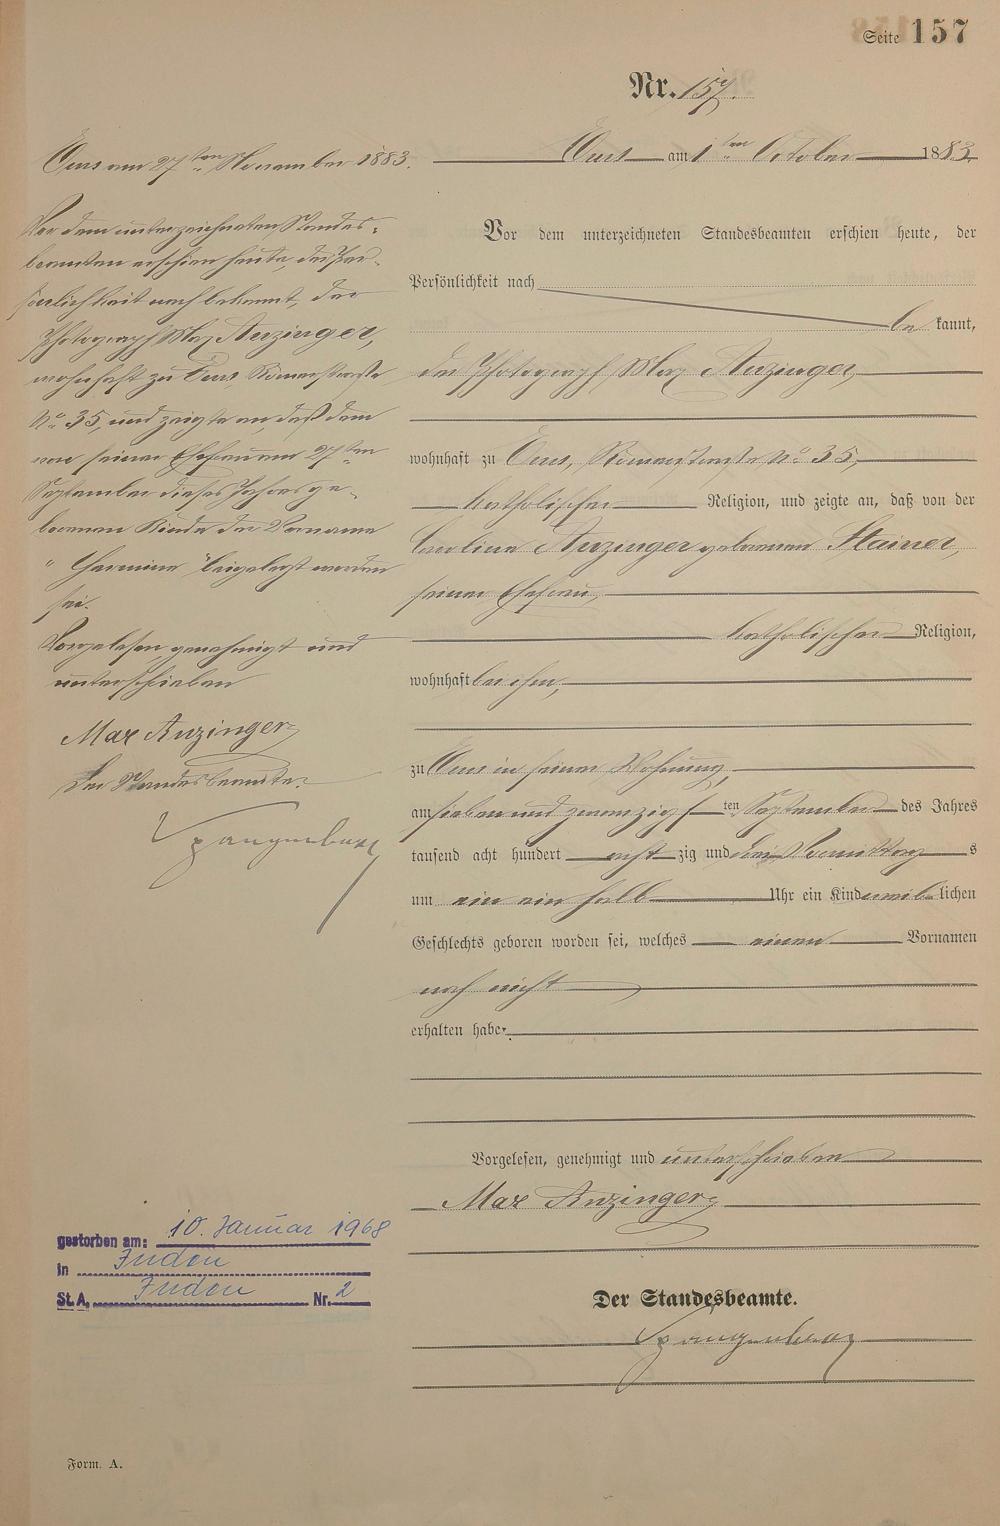 Seite 157
Nr. 157.
Ems am 1ten October 1883.
Vor dem unterzeichneten Standesbeamten erschien heute, der
Persönlichkeit nach
be kannt,
der Photograph Max Anzinger,
wohnhaft zu Ems, Römerstraße No 35,
katholischer Religion, und zeigte an, daß von der
Caroline Anzinger geborenen Stainer,
seiner Ehefrau,
katholischer Religion,
wohnhaft bei ihm,
zu Ems in seiner Wohnung,
am sieben und zwanzigs ten September des Jahres
tausend acht hundert acht zig und drei Vormittag s
um ein ein halb Uhr ein Kind weib lichen
Geschlechts geboren worden sei, welches einen Vornamen
noch nicht
erhalten habe.
Vorgelesen, genehmigt und unterschrieben
Max Anzinger
Der Standesbeamte.
Spangenberg
Ems am 27ten November 1883.
Vor dem unterzeichneten Standes-
beamten erschien heute, der Per-
sönlichkeit nach bekannt, der
Photograph Max Anzinger,
wohnhaft zu Ems, Römerstraße
No 35, und zeigte an daß dem
von seiner Ehefrau am 27ten
September dieses Jahres ge-
borenen Kinde der Vorname
"Hermine" beigelegt worden
sei.
Vorgelesen, genehmigt und
unterschrieben
Max Anzinger
Der Standesbeamte.
Spangenberg
gestorben am: 10. Januar 1968
in Inden
St.A. Inden Nr. 2
Form. A.